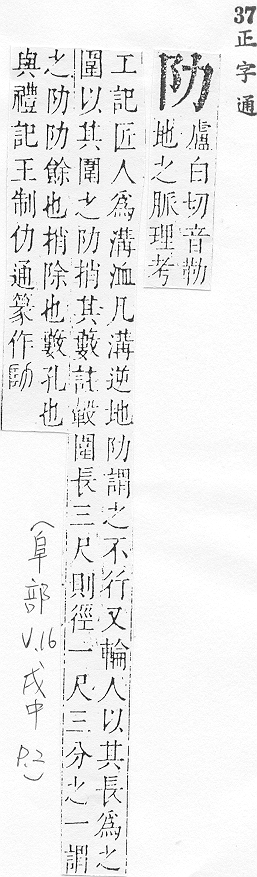 37正字通
阞
盧白切音勒
地之脈理考
工記匠人爲溝洫凡溝逆地阞謂之不行又輪人以其長爲之
圍以其圍之阞捎其藪註轂圍長三尺則徑一尺三分之一謂
之阞阞餘也捎除也藪孔也
與禮記王制仂通篆作
(阜部 V.16 戌中 P.2)